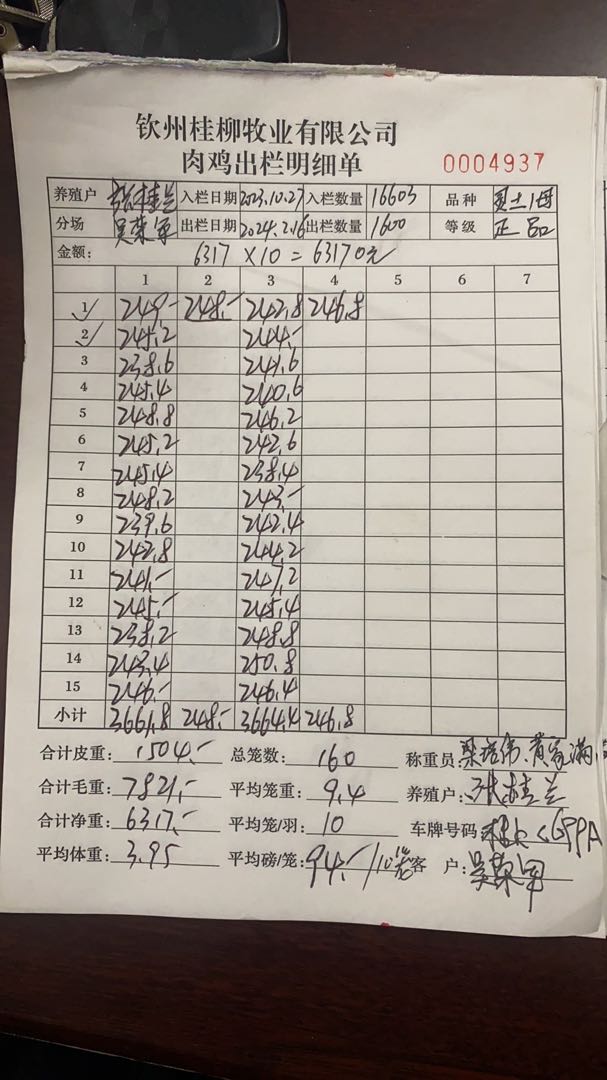 钦州桂柳牧业有限公司
肉鸡出栏明细单 0004937
养殖户 张桂兰 入栏日期 2023.10.27 入栏数量 16603 品种
分场 吴荣军 出栏日期 2024.2.16 出栏数量 1600 等级 正品
金额: 6317×10=63170元
1 2 3 4 5 6 7
1 249.- 248.- 242.8 246.8
2 245.2 244.-
3 238.6 241.6
4 245.4 240.6
5 248.8 246.2
6 245.2 242.6
7 245.4 238.4
8 248.2 243.-
9 239.6 242.4
10 242.8 244.2
11 241.- 247.2
12 245.- 245.4
13 238.2 248.8
14 243.4 250.8
15 246.- 246.4
小计 3661.8 248.- 3664.4 246.8
合计皮重: 1504.- 总笼数: 160 称重员:
合计毛重: 7821.- 平均笼重: 9.4 养殖户: 张桂兰
合计净重: 6317.- 平均笼/羽: 10 车牌号码
平均体重: 3.95 平均磅/笼: 94.-/10 客 户: 吴荣军